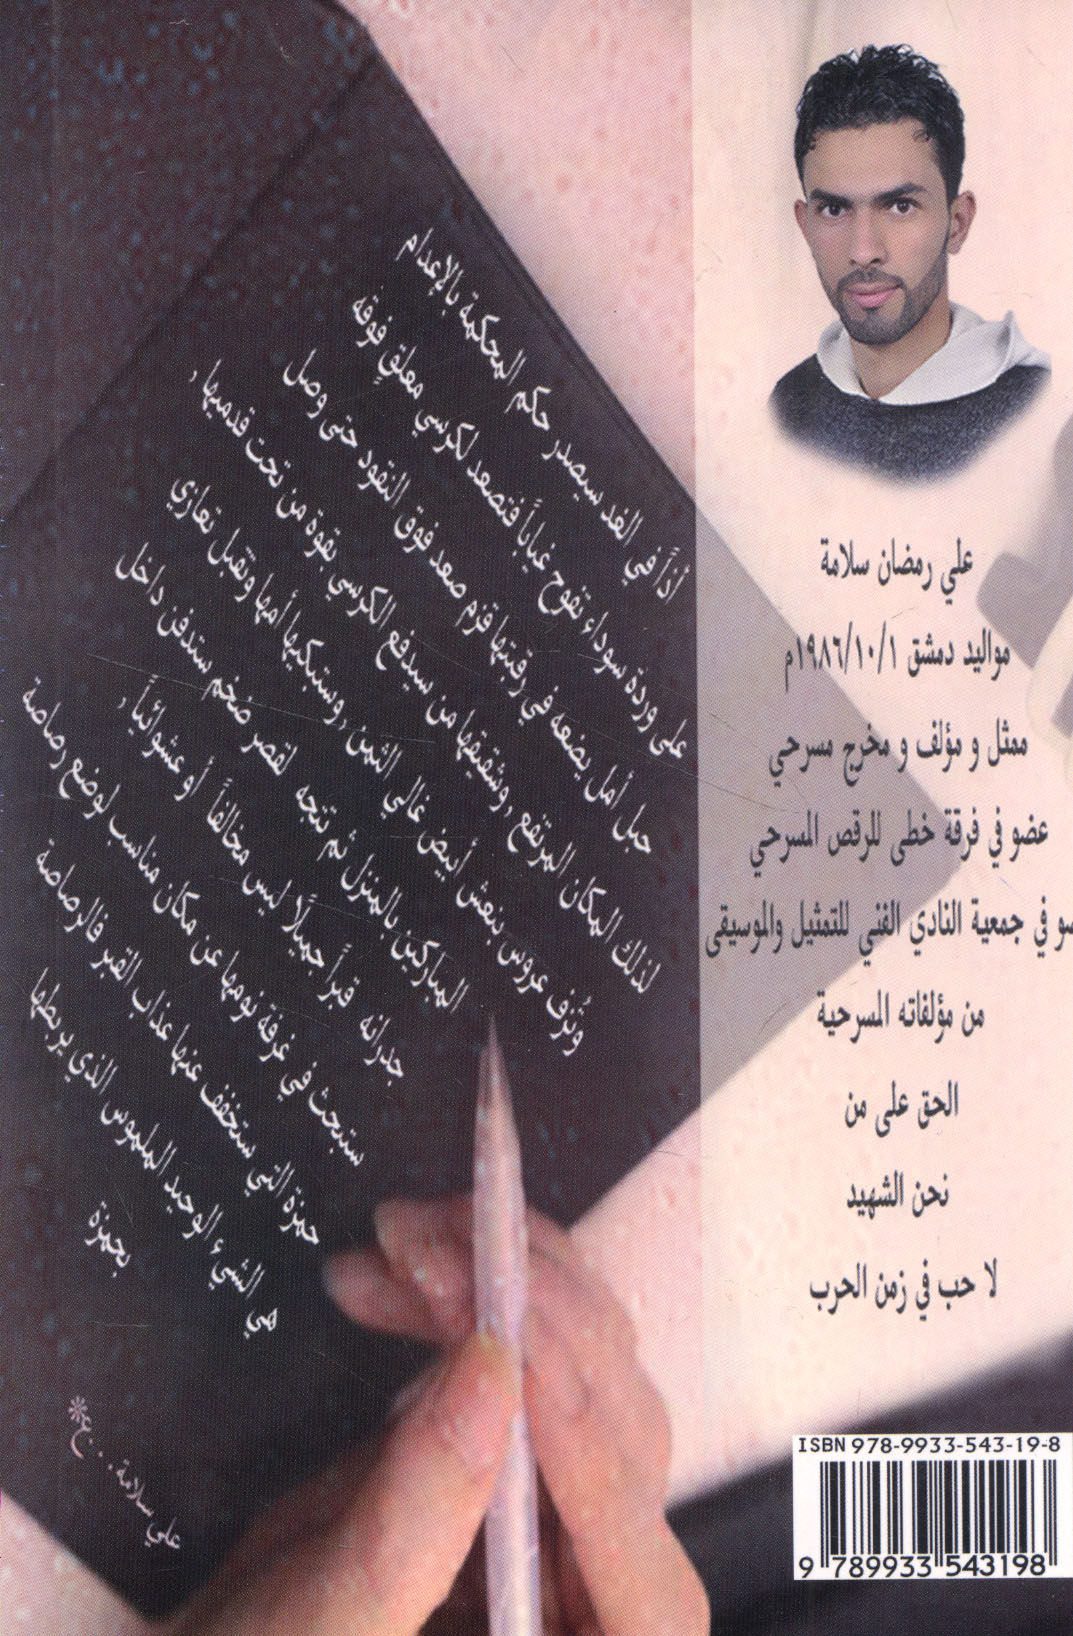 علي رمضان سلامة
مواليد دمشق ١٩٨٦/١٠/١م
ممثل و مؤلف و مخرج مسرحي
عضو في فرقة خطى للرقص المسرحي
ضو في جمعية النادي الفني للتمثيل والموسيقى
من مؤلفاته المسرحية
الحق على من
نحن الشهيد
لا حب في زمن الحرب
أذاً في الغد سيصدر حكم المحكمة بالإعدام
على وردة سوداء تفوح غياباً فتصعد لكرسي معلق فوقه
حبل أمل يضعه في رقبتها قزم صعد فوق النقود حتى وصل
لذلك المكان المرتفع ,وشقيقها من سيدفع الكرسي بقوة من تحت قدميها ,
وتُزف عروس بنعش أبيض غالي الثمن ,وستبكيها أمها وتتقبل تعازي
المباركين بالمنزل ثم تتجه لقصر ضخم ستدفن داخل
جدرانه قبراً جميلاً ليس مخالفاً أو عشوائياً ,
ستبحث في غرفة نومها عن مكان مناسب لوضع رصاصة
حمزة التي ستخفف عنها عذاب القبر فالرصاصة
هي الشيء الوحيد الملموس الذي يربطها
بحمزة
علي سلامة...ع*
ISBN 978-9933-543-19-8
9 789933 543198